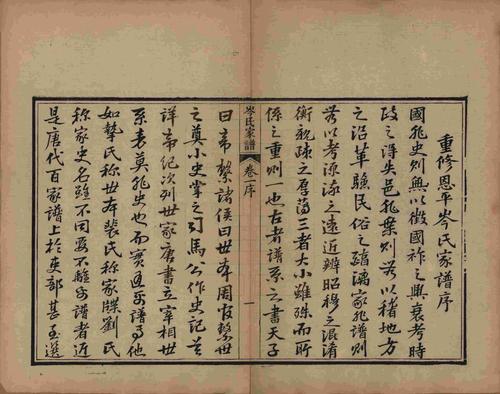 重修恩平岑氏家譜序
國非史則無以徵國祚之興衰考時
政之得失邑非乘則無以稽地方
之沿革驗民俗之醇漓家非譜則
無以考源流之遠近辨昭穆之混淆
衡親疎之厚薄三者大小雖殊而所
係之重則一也古者譜系之書天子
岑氏家譜 卷一序 一
曰帝繫諸侯曰世本周官繫世
之奠小史掌之司馬公作史記並
詳帝紀次列世家唐書立宰相世
系表莫非史也而實通乎譜焉他
如摯氏稱世本裴氏稱家牒劉氏
稱家史名雖不同要不離乎譜者近
是唐代百家譜上於吏部甚至選